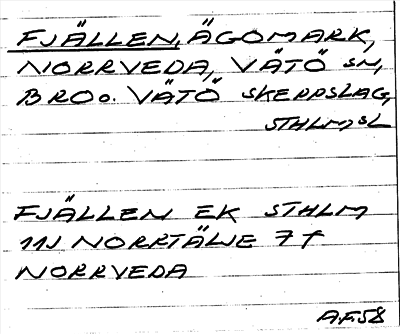 FJÄLLEN, ÄGOMARK,
NORRVEDA, VÄTÖ SN,
BRO o. VÄTÖ SKEPPSLAG,
STHLMSL
FJÄLLEN EK STHLM
11J NORRTÄLJE 7 f
NORRVEDA
A.F.58